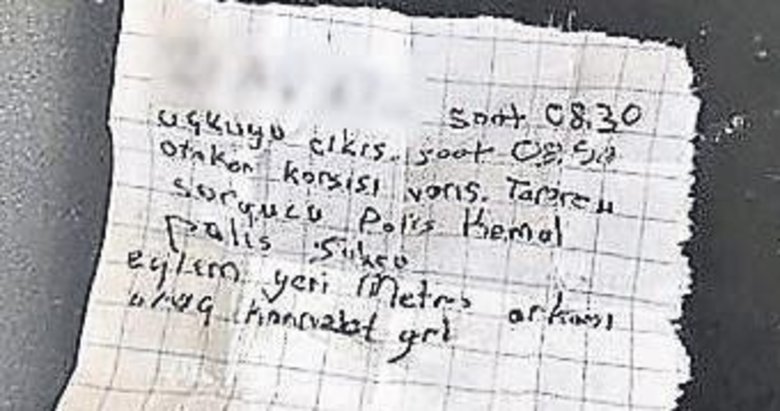 saat 08.30
uçkuyu çıkış. saat 08:50
otokar karsısı varıs.
sorgucu Polis Kemal
Polis Sükrü
eylem yeri Metro arkası
araç gri